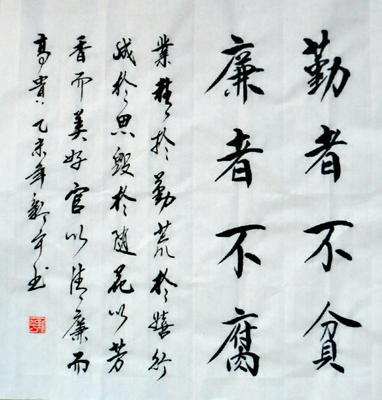 勤者不貧
廉者不腐
業精於勤荒於嬉行
成於思毀於隨花以芳
香而美好官以清廉而
高貴乙未年新宇书